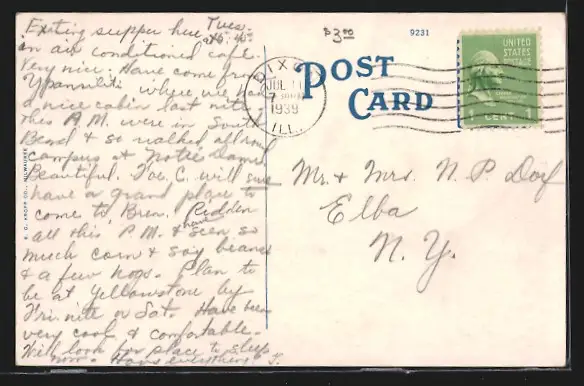 Tues.
Eating supper here
in an air conditioned cafe.
Very nice. Have come from
Ypsanliti where we had
a nice cabin last nite
this A.M. were in South
Bend & so walked all round
campus at Notre Dame
Beautiful. C. will sure
have a grand place to
come to, Bren. Ridden
all this P.M. & have seen so
much corn & soy beans
& a few hogs. Plan to
be at Yellowstone by
Fri nite or Sat. Have been
very cool & comfortable.
Will look for place to sleep
now. everything
$3.00
9231
POST
CARD
DIXON
JUL 11
7 PM
1939
ILL.
UNITED
STATES
POSTAGE
1 CENT 1
Mr. & Mrs. N. P. Dorf
Elba
N. Y.
E. C. KROPP CO., MILWAUKEE